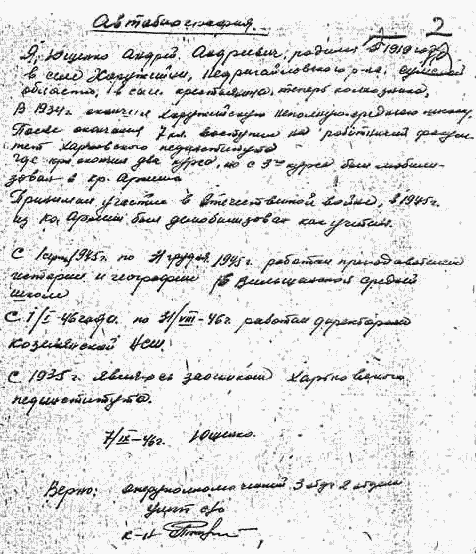 Автобиография
2
Я, Ющенко Андрей Андреевич, родился в 1919 году
в селе Хоружевки, Недригайловского р-на, сумской
области, в сем. крестьянина, теперь колхозника,
В 1934г. окончил Хоружевскую неполную среднюю школу,
После окончания 7 кл. поступил на рабочий факуль-
тет Харьковского пединститута
где окончил два курса, но с 3го курса был мобили-
зован в кр. Армию
Принимал участие в Отечественной войне, в 1945г.
из Кр. Армии был демобилизован как учитель.
С 1 1945г. по 31 1945г. работал преподавателем
истории и географии в средней
школе
С 1/I-46 года по 31/VIII-46г. работал директором
НСШ.
С 1935г. заочником Харьковского
пединститута.
7/IX-46г. Ющенко.
Верно: 3 отд. 2 отдела
к-н